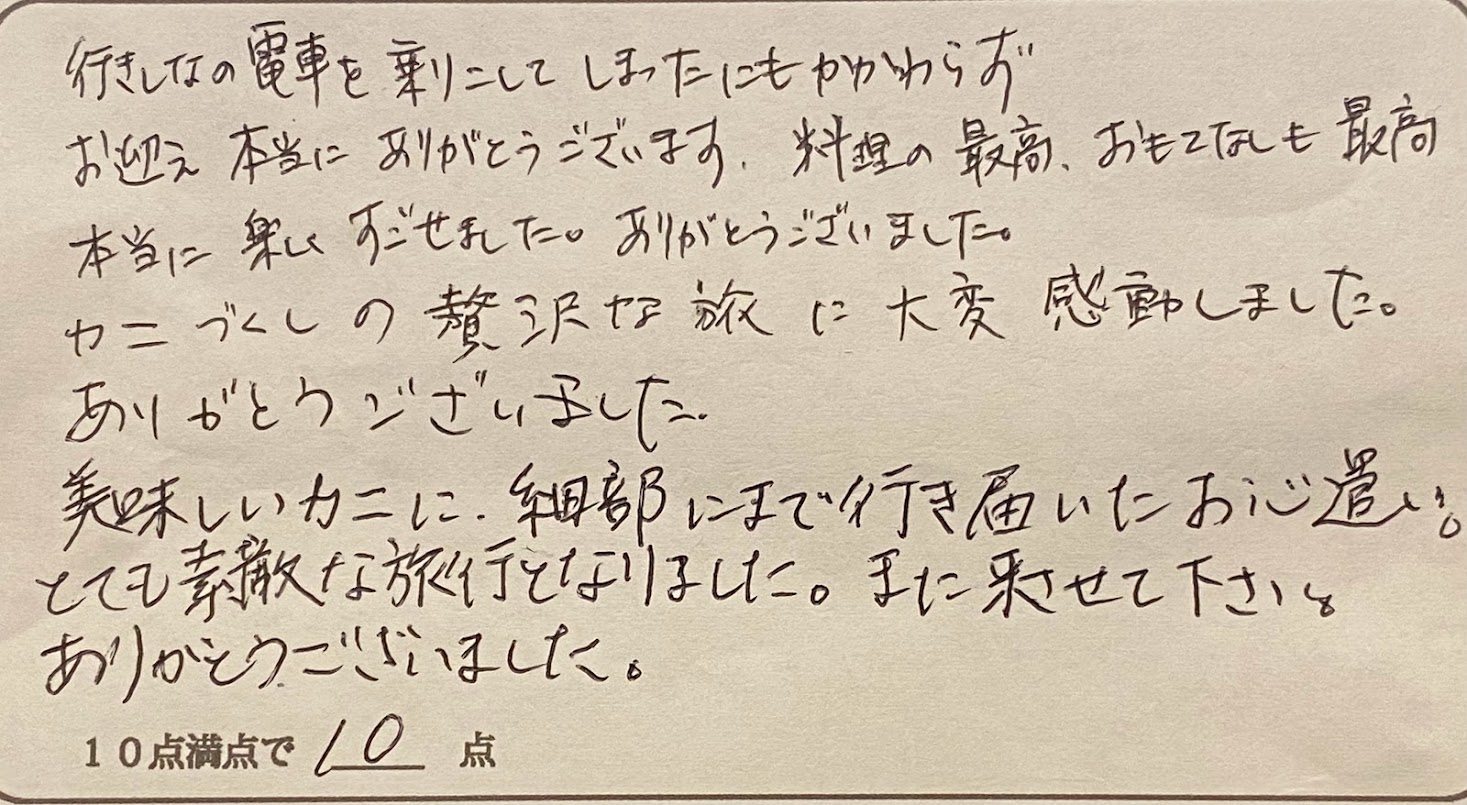 行きしなの電車を乗りこしてしまったにもかかわらず
お迎え本当にありがとうございます. 料理の最高、おもてなしも最高
本当に楽しくすごせました。ありがとうございました。
カニづくしの贅沢な旅に大変感動しました。
ありがとうございました.
美味しいカニに、細部にまで行き届いたお心遣い。
とても素敵な旅行となりました。また来させて下さい。
ありがとうございました。
10点満点で 10 点